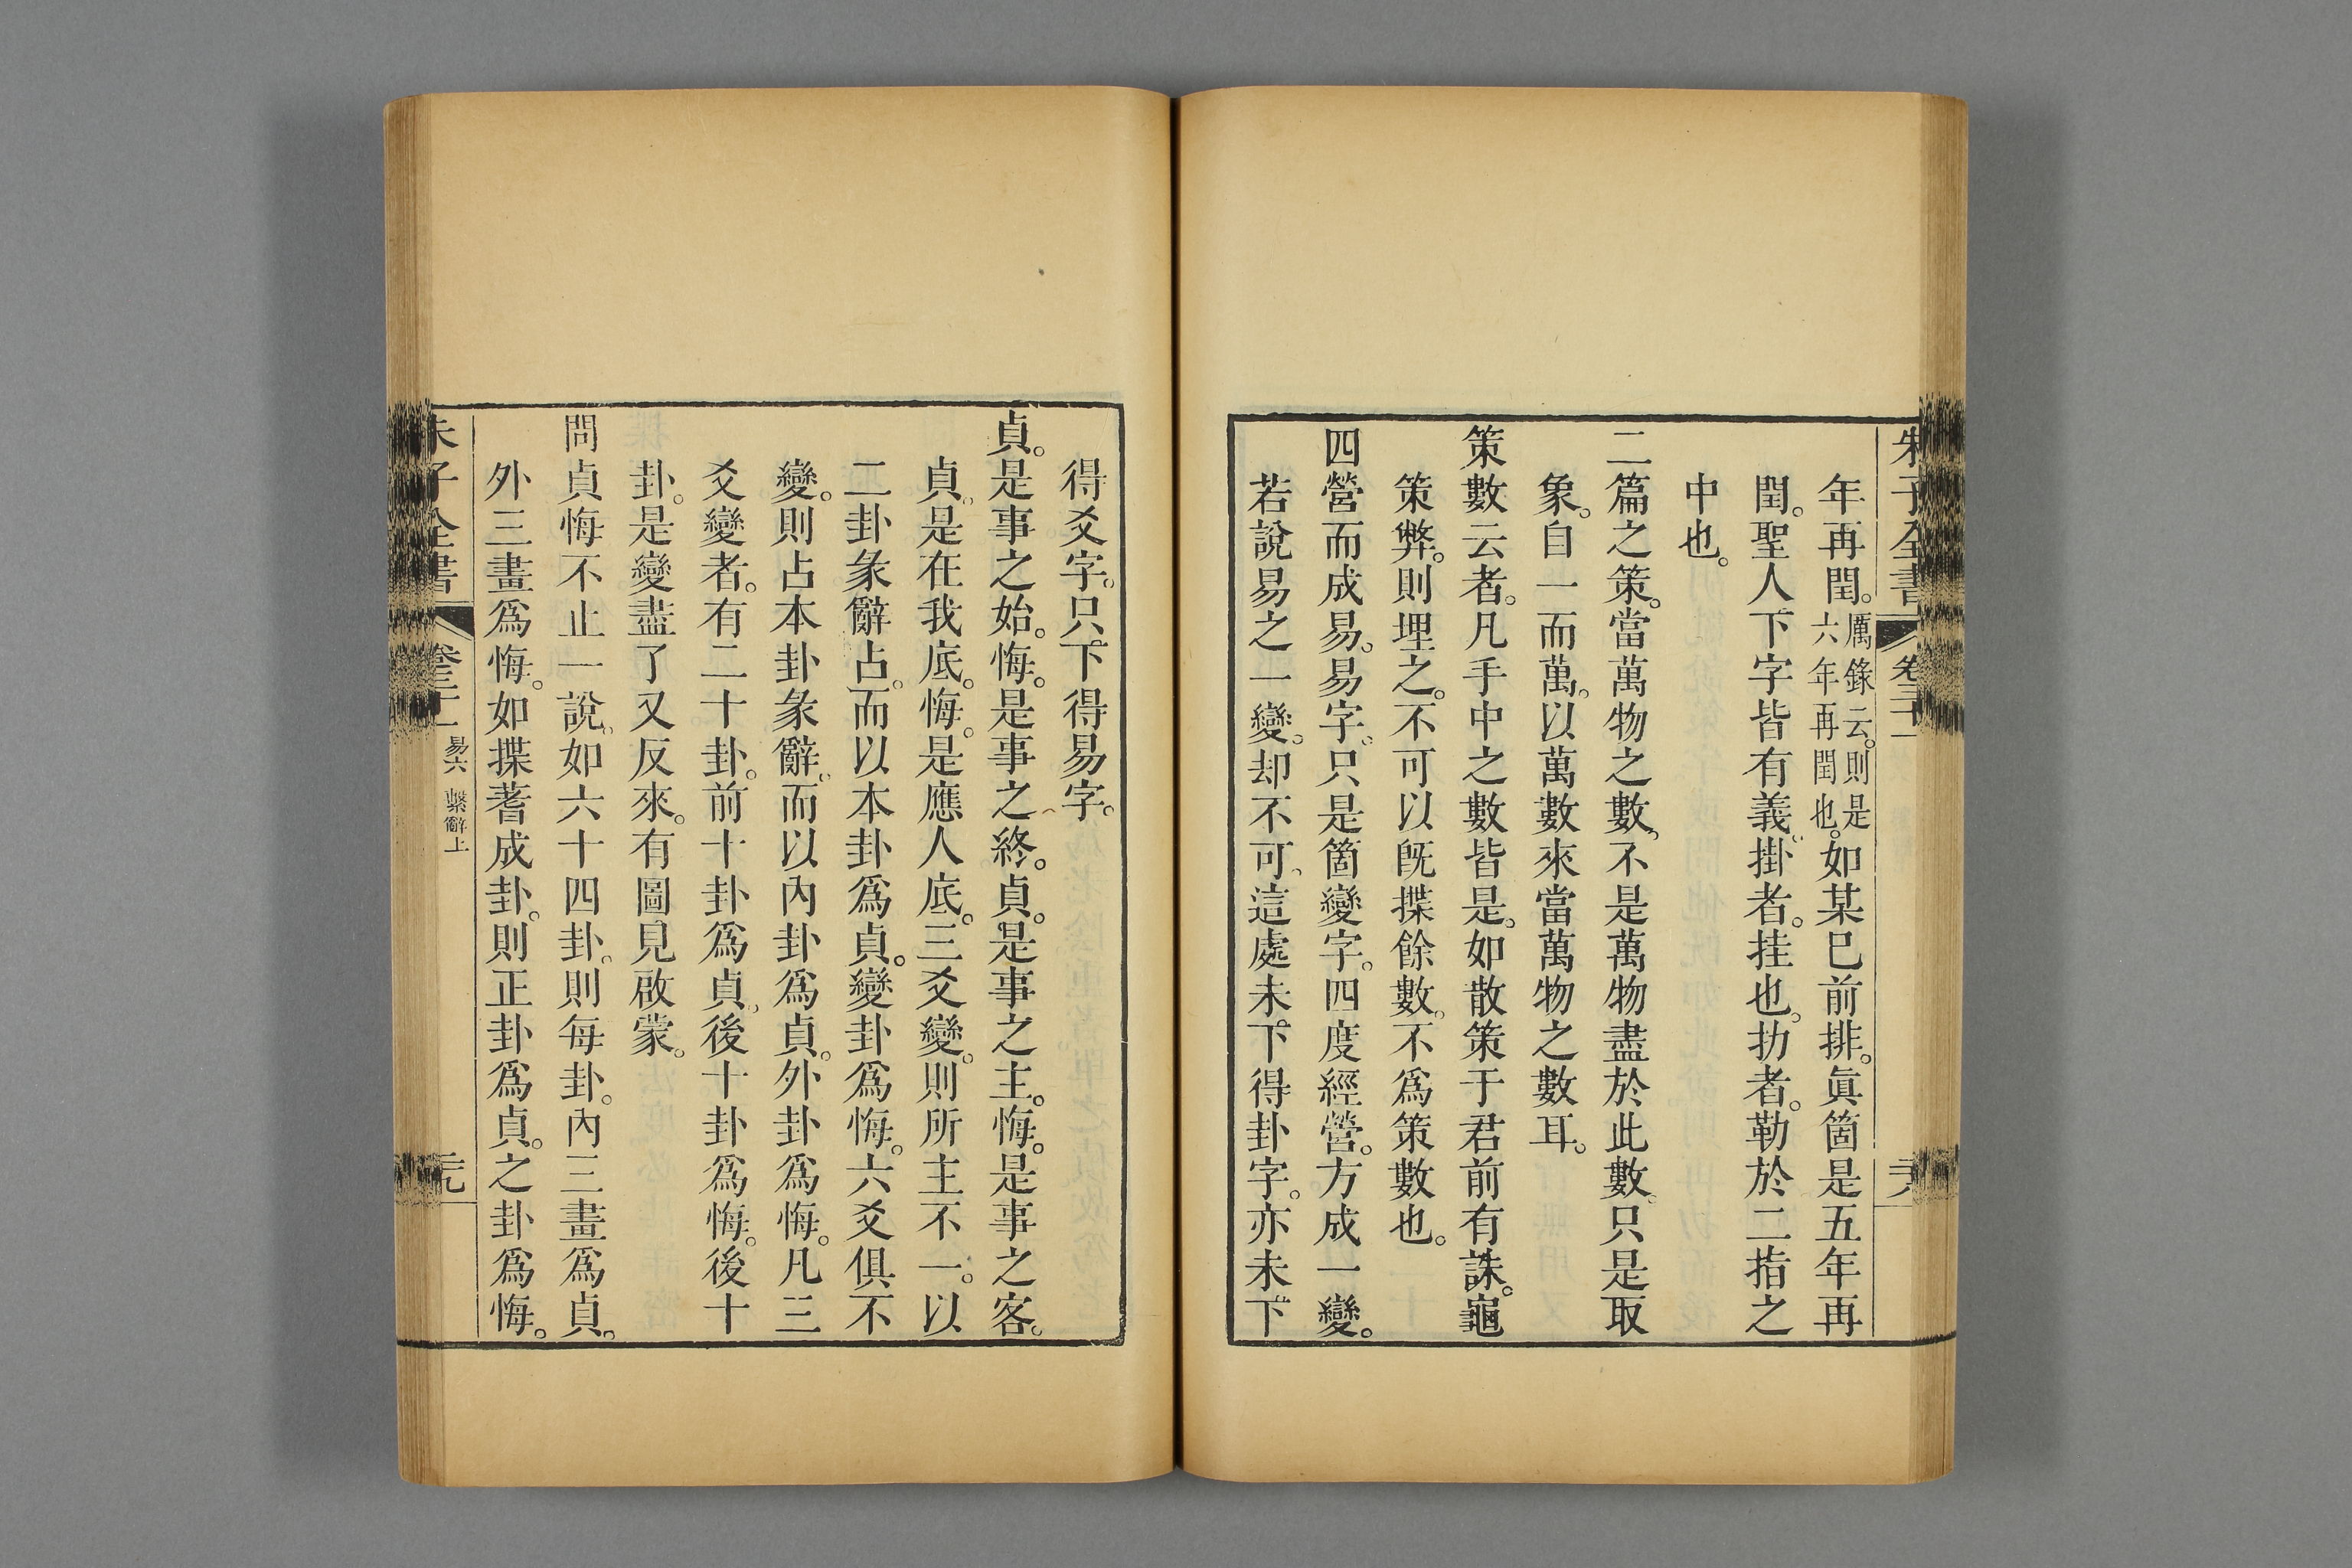 朱子全書 卷三十一
年再閏。厲錄云。則是六年再閏也。如某已前排。眞箇是五年再
閏。聖人下字皆有義。掛者。挂也。扐者。勒於二指之
中也。
二篇之策。當萬物之數。不是萬物盡於此數。只是取
象。自一而萬。以萬數來當萬物之數耳。
策數云者。凡手中之數皆是。如散策于君前有誅。龜
策弊。則埋之。不可以旣揲餘數。不爲策數也。
四營而成易。易字。只是箇變字。四度經營。方成一變。
若說易之一變。却不可。這處未下得卦字。亦未下
得爻字。只下得易字。
貞。是事之始。悔。是事之終。貞。是事之主。悔。是事之客。
貞。是在我底。悔。是應人底。三爻變。則所主不一。以
二卦彖辭占。而以本卦爲貞。變卦爲悔。六爻俱不
變。則占本卦彖辭。而以內卦爲貞。外卦爲悔。凡三
爻變者。有二十卦。前十卦爲貞。後十卦爲悔。後十
卦。是變盡了又反來。有圖見啟蒙。
問貞悔不止一說。如六十四卦。則每卦。內三畫爲貞。
外三畫爲悔。如揲蓍成卦。則正卦爲貞。之卦爲悔。
朱子全書 卷三十一 易六 繫辭上 二九